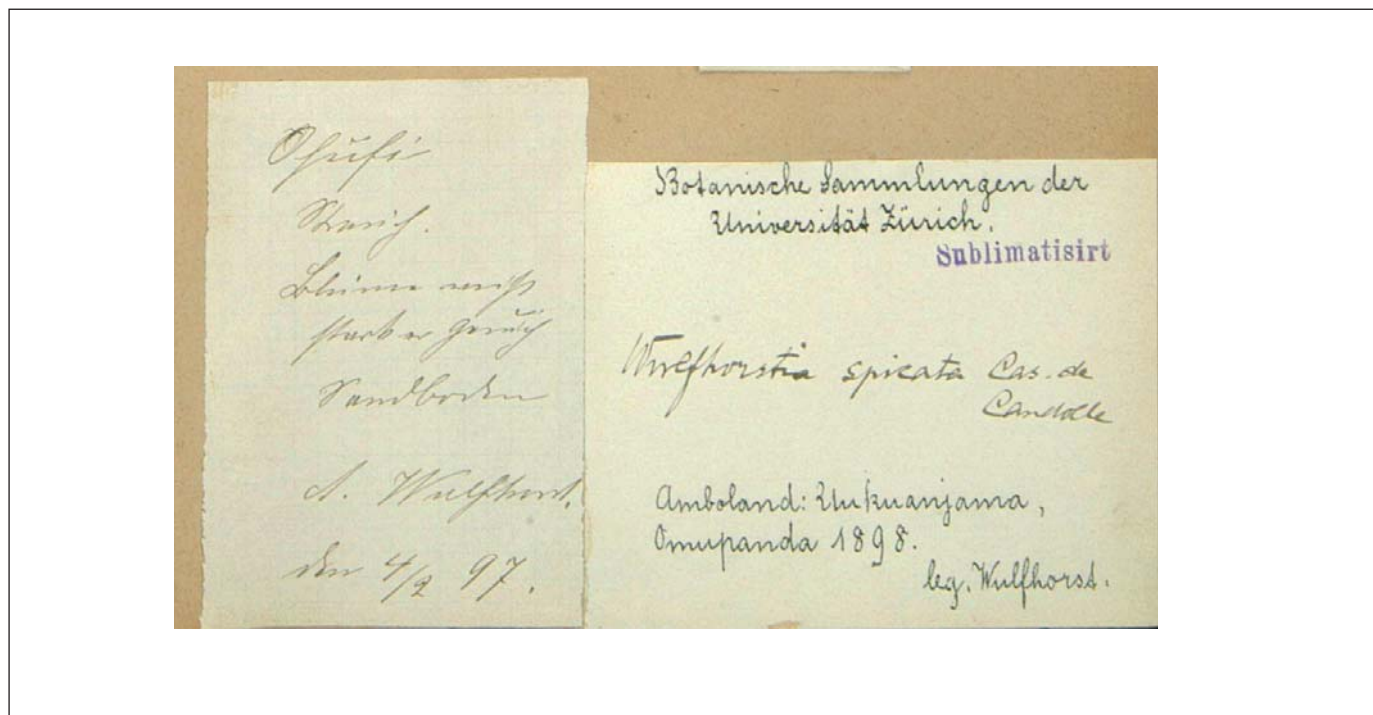 Strauch.
Blume weiß
starker Geruch
Sandboden
A. Wulfhorst.
den 4/2 97.
Botanische Sammlungen der
Universität Zürich.
Sublimatisirt
Wulfhorstia spicata Cas. de
Candolle
Amboland: Uukuanjama,
Omupanda 1898.
leg. Wulfhorst.